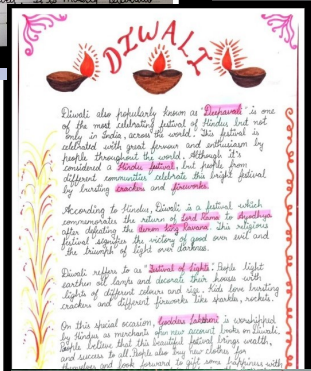 DIWALI
Diwali also popularly known as "Deepavali" is one
of the most celebrating festival of Hindus but not
only in India, across the world. This festival is
celebrated with great fervour and enthusiasm by
people throughout the world. Although it's
considered a Hindu festival, but people from
different communities celebrate this bright festival
by bursting crackers and fireworks.
According to Hindus, Diwali is a festival which
commemorates the return of Lord Rama to Ayodhya
after defeating the demon King Ravana. This religious
festival signifies the victory of good over evil and
the triumph of light over darkness.
Diwali reffers to as "Festival of Lights". People light
earthen oil lamps and decorate their houses with
lights of different colours and sigs. Kids love bursting
crackers and different fireworks like sparkle, rockets
On this special occasion, Goddess Lakshmi is worshipped
by Hindus as merchants open new account books on Diwali.
People believe that this beautiful festival brings wealth,
and success to all. People also buy new clothes for
themselves and look forward to gift some happiness with